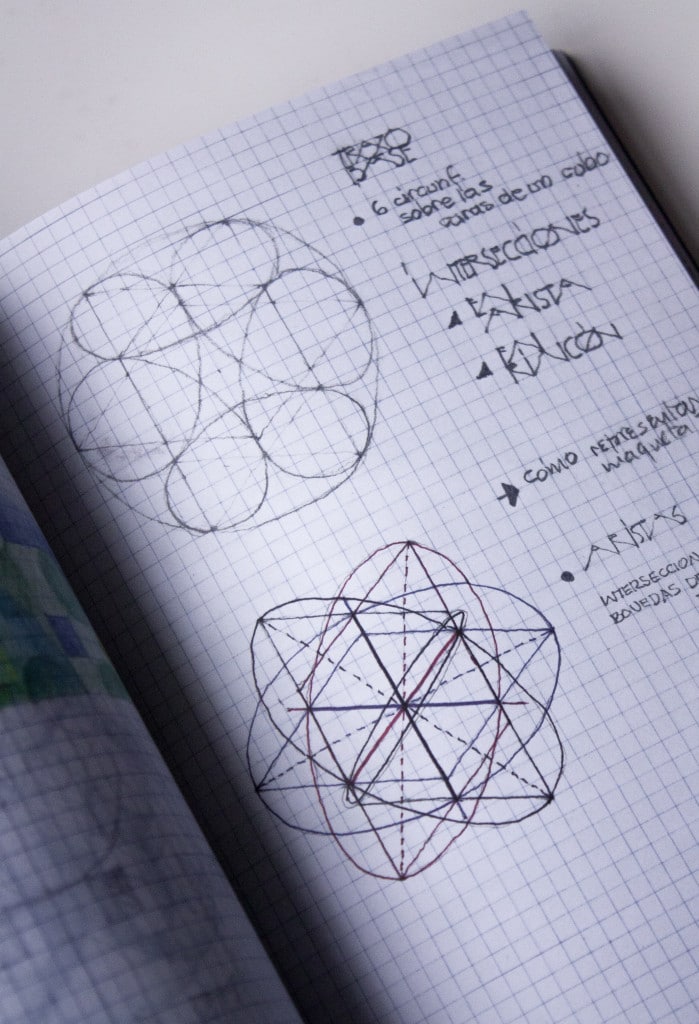 TRAZO
BASE
• 6 circunf.
sobre las
caras de un cubo
INTERSECCIONES
ARISTA
RINCÓN
→ COMO REPRESENTAR
maqueta
• ARISTAS
INTERSECCION
BOVEDAS DE